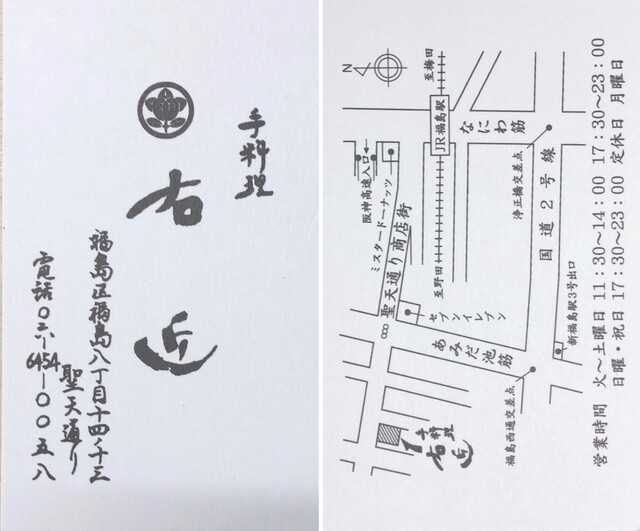 手料理
右近
福島区福島八丁目十四ノ十三
聖天通り
電話〇六-6454-〇〇五八
N
至梅田
JR福島駅
なにわ筋
浄正橋交差点
阪神高速入口
ミスタードーナッツ
聖天通り商店街
至野田
国道2号線
セブンイレブン
新福島駅3号出口
あみだ池筋
福島西通交差点
手料理
右近
営業時間 火～土曜日 11:30～14:00 17:30～23:00
日曜・祝日 17:30～23:00 定休日 月曜日